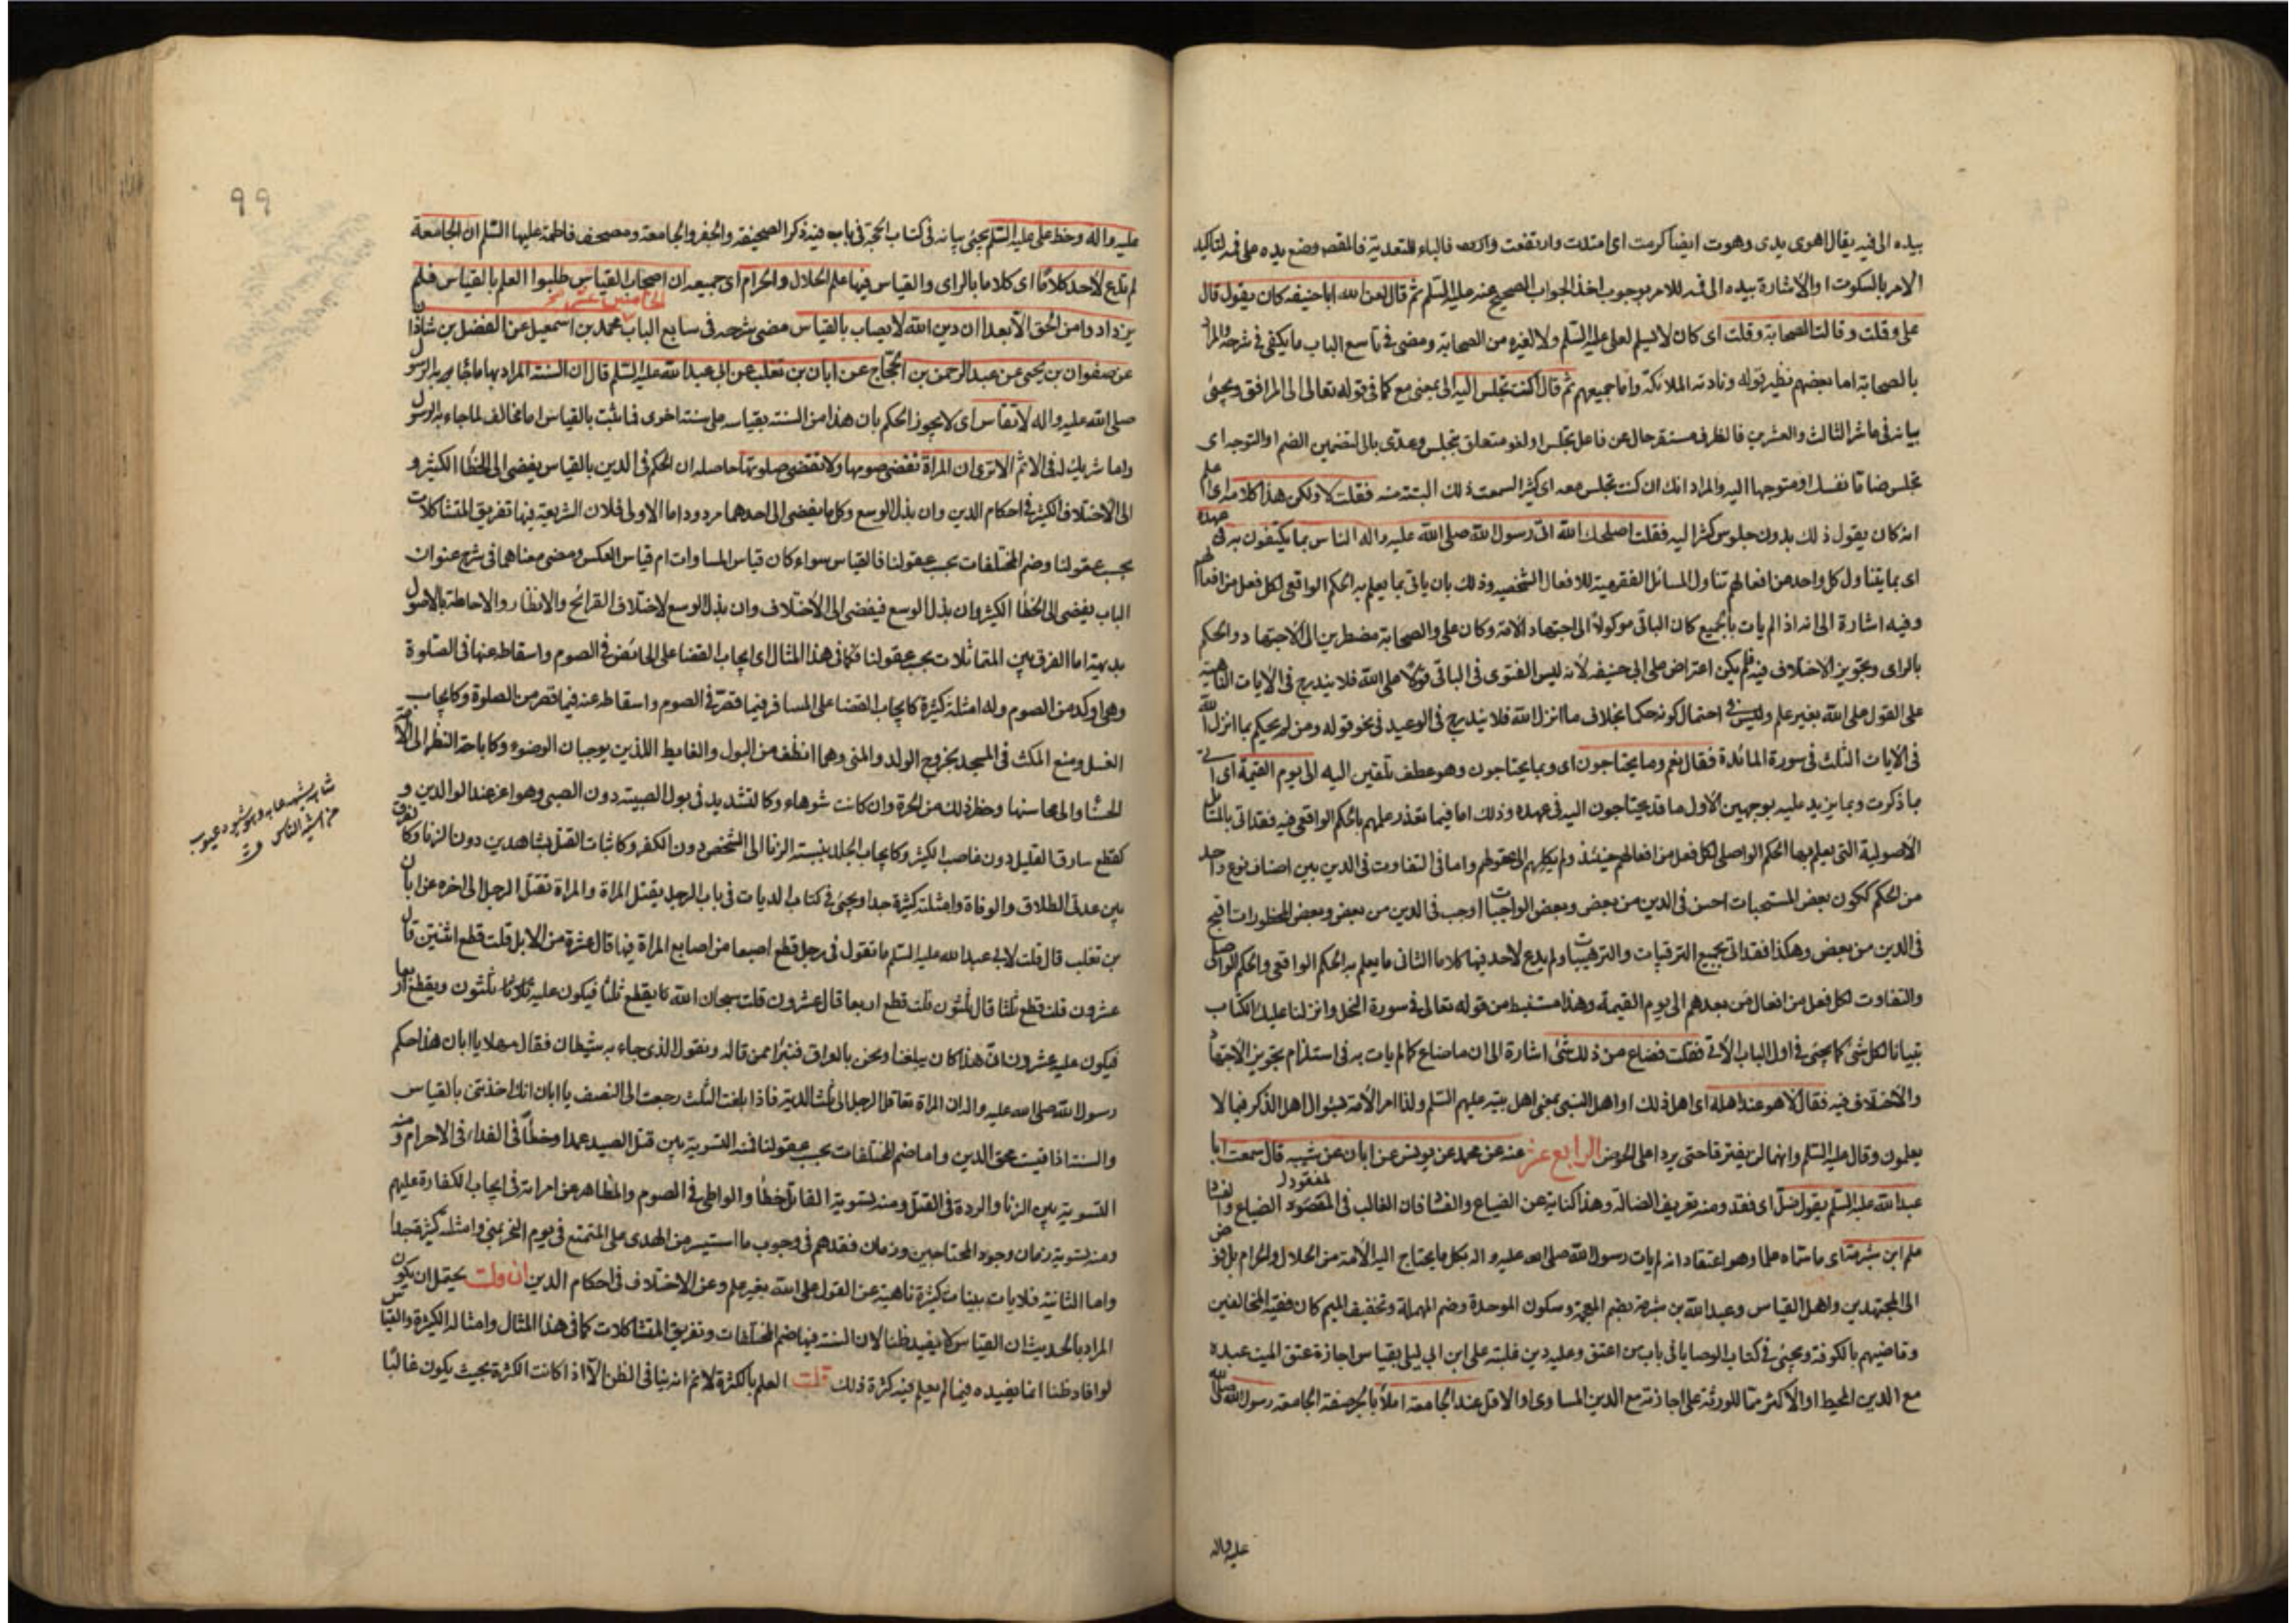 بيده الى فيه يقال اهوى يدى وهوت ايضا كرمت اى امتدت وارتفعت فالباء للتعدية فالمقصود وضع يده على فمه لتاكيد
الامر بالسكوت او الاشارة بيده الى فمه للامر بوجوب اخذ الجواب الصحيح عنه عليه السلم ثم قال لعن الله ابا حنيفه كان يقول قال
على وقلت وقالت الصحابة وقلت اى كان لا يسلم لعلى عليه السلم ولا لغيره من الصحابة ومضى فى تاسع الباب ما يكفى فى شرحه والمراد
بالصحابة اما بعضهم نظير قوله ونادته الملائكة واما جميعهم ثم قال اكنت تجلس اليه الى بمعنى مع كما فى قوله تعالى الى المرافق ويجئ
بيانه فى عاشر الثالث والعشرين فالظرف مستقر حال عن فاعل تجلس او لغو متعلق بتجلس وعدى بالى لتضمين الضم او التوجه اى
تجلس ضاما نفسك او متوجها اليه والمراد انك ان كنت تجلس معه اى كثيرا لسمعت ذلك البتة منه فقلت لا ولكن هذا كلامه اى اعلم
انه كان يقول ذلك بدون جلوس كثير اليه فقلت اصلحك الله اتى رسول الله صلى الله عليه واله الناس بما يكتفون به فى عهده
اى بما يتناول كل واحد من افعالهم تناول المسائل الفقهية للافعال الشخصية وذلك بان ياتى بما يعلم به الحكم الواقعى لكل فعل من افعالهم
وفيه اشارة الى انه اذا لم يات بالجميع كان الباقى موكولا الى اجتهاد الامة وكان على والصحابة مضطرين الى الاجتهاد والحكم
بالراى وتجويز الاختلاف فيه فلم يكن اعتراض على ابى حنيفه لانه ليس الفتوى فى الباقى قولا على الله فلا يندرج فى الايات الناهية
على القول على الله بغير علم وليس فى احتمال كونه حكما بخلاف ما انزل الله فلا يندرج فى الوعيد فى نحو قوله ومن لم يحكم بما انزل الله
فى الايات الثلث فى سورة المائدة فقال نعم وما يحتاجون اى وبما يحتاجون وهو عطف تلقين اليه الى يوم القيمة اى اتى
بما ذكرت وبما يزيد عليه بوجهين الاول ما قد يحتاجون اليه فى عهده وذلك اما فيما تعذر علمهم بالحكم الواقعى فيه فقد اتى بالمسائل
الاصولية التى يعلم بها الحكم الواصلى لكل فعل من افعالهم حينئذ ولم يكلهم الى عقولهم واما فى التفاوت فى الدين بين اصناف نوع واحد
من الحكم ككون بعض المستحبات احسن فى الدين من بعض وبعض الواجبات اوجب فى الدين من بعض وبعض المحظورات اقبح
فى الدين من بعض وهكذا فقد اتى بجميع الترغيبات والترهيبات ولم يدع لاحد فيها كلاما الثانى ما يعلم به الحكم الواقعى والحكم الواصلى
والتفاوت لكل فعل من افعال من بعدهم الى يوم القيمة وهذا مستنبط من قوله تعالى فى سورة النحل وانزلنا عليك الكتاب
تبيانا لكل شئ كما يجئ فى اول الباب الاتى فقلت فضاع من ذلك شئ اشارة الى ان ما ضاع كما لم يات به فى استلزام تجويز الاجتهاد
والاختلاف فيه فقال لا هو عند اهله اى اهل ذلك او اهل النبى بمعنى اهل بيته عليهم السلم ولذا امر الامة بسؤال اهل الذكر فيما لا
يعلمون وقال عليه السلم وانهما لن يفترقا حتى يردا على الحوض الرابع عشر عنه عن محمد عن يونس عن ابان عن شيبه قال سمعت ابا
عبد الله عليه السلم يقول ضل اى فقد ومنه تعريف الضالة وهذا كناية عن الضياع والفساد فان الغالب فى المفقود الضياع والفساد
علم ابن شبرمة اى ما سماه علما وهو اعتقاد انه لم يات رسول الله صلى الله عليه واله بكل ما يحتاج اليه الامة من الحلال والحرام بل فوض
الى المجتهدين واهل القياس وعبد الله بن شبرمة بضم المعجمة وسكون الموحدة وضم المهملة وتخفيف الميم كان فقيه المخالفين
وقاضيهم بالكوفة ويجئ فى كتاب الوصايا فى باب من اعتق وعليه دين غلبته على ابن ابى ليلى بقياس اجازة عتق الميت عبده
مع الدين المحيط او الاكثر مما للورثة على اجازته مع الدين المساوى او الاقل عند الجامعة املا بالجر صفة الجامعة رسول الله صلى الله
عليه واله
99
عليه واله وخط على عليه السلم يجئ بيانه فى كتاب الحجة فى باب فيه ذكر الصحيفة والجفر والجامعة ومصحف فاطمة عليها السلم ان الجامعة
لم تدع لاحد كلاما اى كلاما بالراى والقياس فيها علم الحلال والحرام اى جميعه ان اصحاب القياس طلبوا العلم بالقياس فلم
يزدادوا من الحق الا بعدا ان دين الله لا يصاب بالقياس مضى شرحه فى سابع الباب الخامس عشر محمد بن اسمعيل عن الفضل بن شاذان
عن صفوان بن يحيى عن عبد الرحمن بن الحجاج عن ابان بن تغلب عن ابى عبد الله عليه السلم قال ان السنة المراد بها ما جاء به الرسول
صلى الله عليه واله لا تقاس اى لا يجوز الحكم بان هذا من السنة بقياسه على سنة اخرى فما يثبت بالقياس اما مخالف لما جاء به الرسول
واما شريك له فى الاثم الا ترى ان المراة تقضى صومها ولا تقضى صلوتها حاصله ان الحكم فى الدين بالقياس يفضى الى الخطا الكثير و
الى الاختلاف الكثير فى احكام الدين وان بذل الوسع وكل ما يفضى الى احدهما مردود اما الاولى فلان الشريعة فيها تفريق المتشاكلات
بحسب عقولنا وضم المختلفات بحسب عقولنا فالقياس سواء كان قياس المساوات ام قياس العكس ومضى معناهما فى شرح عنوان
الباب يفضى الى الخطا الكثير وان بذل الوسع فيفضى الى الاختلاف وان بذل الوسع لاختلاف القرائح والانظار والاحاطة بالاصول
بديهة اما الفرق بين المتماثلات بحسب عقولنا فكما فى هذا المثال اى ايجاب القضا على الحائض فى الصوم واسقاطه عنها فى الصلوة
وهى اوكد من الصوم وله امثلة كثيرة كايجاب القضا على المسافر فيما قصر فى الصوم واسقاطه عنه فيما قصر من الصلوة وكايجاب
الغسل ومنع المكث فى المسجد بخروج الولد والمنى وهما انظف من البول والغايط اللذين يوجبان الوضوء وكاباحة النظر الى الامة
الحسناء والى محاسنها وحظر ذلك من الحرة وان كانت شوهاء وكالتشديد فى بول الصبية دون الصبى وهو اعز عند الوالدين و
كقطع سارق القليل دون غاصب الكثير وكايجاب الجلد بنسبة الزنا الى الشخص دون الكفر وكاثبات القتل بشاهدين دون الزنا وكالفرق
بين عدتى الطلاق والوفاة وامثلته كثيرة جدا ويجئ فى كتاب الديات فى باب الرجل يقتل المراة والمراة تقتل الرجل الى اخره عن ابان
بن تغلب قال قلت لابى عبد الله عليه السلم ما تقول فى رجل قطع اصبعا من اصابع المراة فيها قال عشرة من الابل قلت قطع اثنتين قال
عشرون قلت قطع ثلثا قال ثلثون قلت قطع اربعا قال عشرون قلت سبحان الله يقطع ثلثا فيكون عليه ثلثون ويقطع اربعا
فيكون عليه عشرون ان هذا كان يبلغنا ونحن بالعراق فنبرا ممن قاله ونقول الذى جاء به شيطان فقال مهلا يا ابان هذا حكم
رسول الله صلى الله عليه واله ان المراة تعاقل الرجل الى ثلث الدية فاذا بلغت الثلث رجعت الى النصف يا ابان انك اخذتنى بالقياس
والسنة اذا قيست محق الدين واما ضم المختلفات بحسب عقولنا فمنه التسوية بين قتل الصيد عمدا وخطا فى الفداء فى الاحرام ومنه
التسوية بين الزنا والردة فى القتل ومنه تسوية القاتل خطأ والواطى فى الصوم والمظاهر عن امراته فى ايجاب الكفارة عليهم
ومنه تسوية زمان وجود المحتاجين وزمان فقدهم فى وجوب ما استيسر من الهدى على المتمتع فى يوم النحر بمنى وامثلته كثيرة جدا
واما الثانية فلايات بينات كثيرة ناهية عن القول على الله بغير علم وعن الاختلاف فى احكام الدين ان قلت يحتمل ان يكون
المراد بالحديث ان القياس لا يفيد ظنا لان السنة فيها ضم المختلفات وتفريق المتشاكلات كما فى هذا المثال وامثاله الكثيرة والقياس
لو افاد ظنا انما يفيده فيما لم يعلم فيه كثرة ذلك قلت العلم بالكثرة لا نم انه ينافى الظن الا اذا كانت الكثرة بحيث يكون غالبا